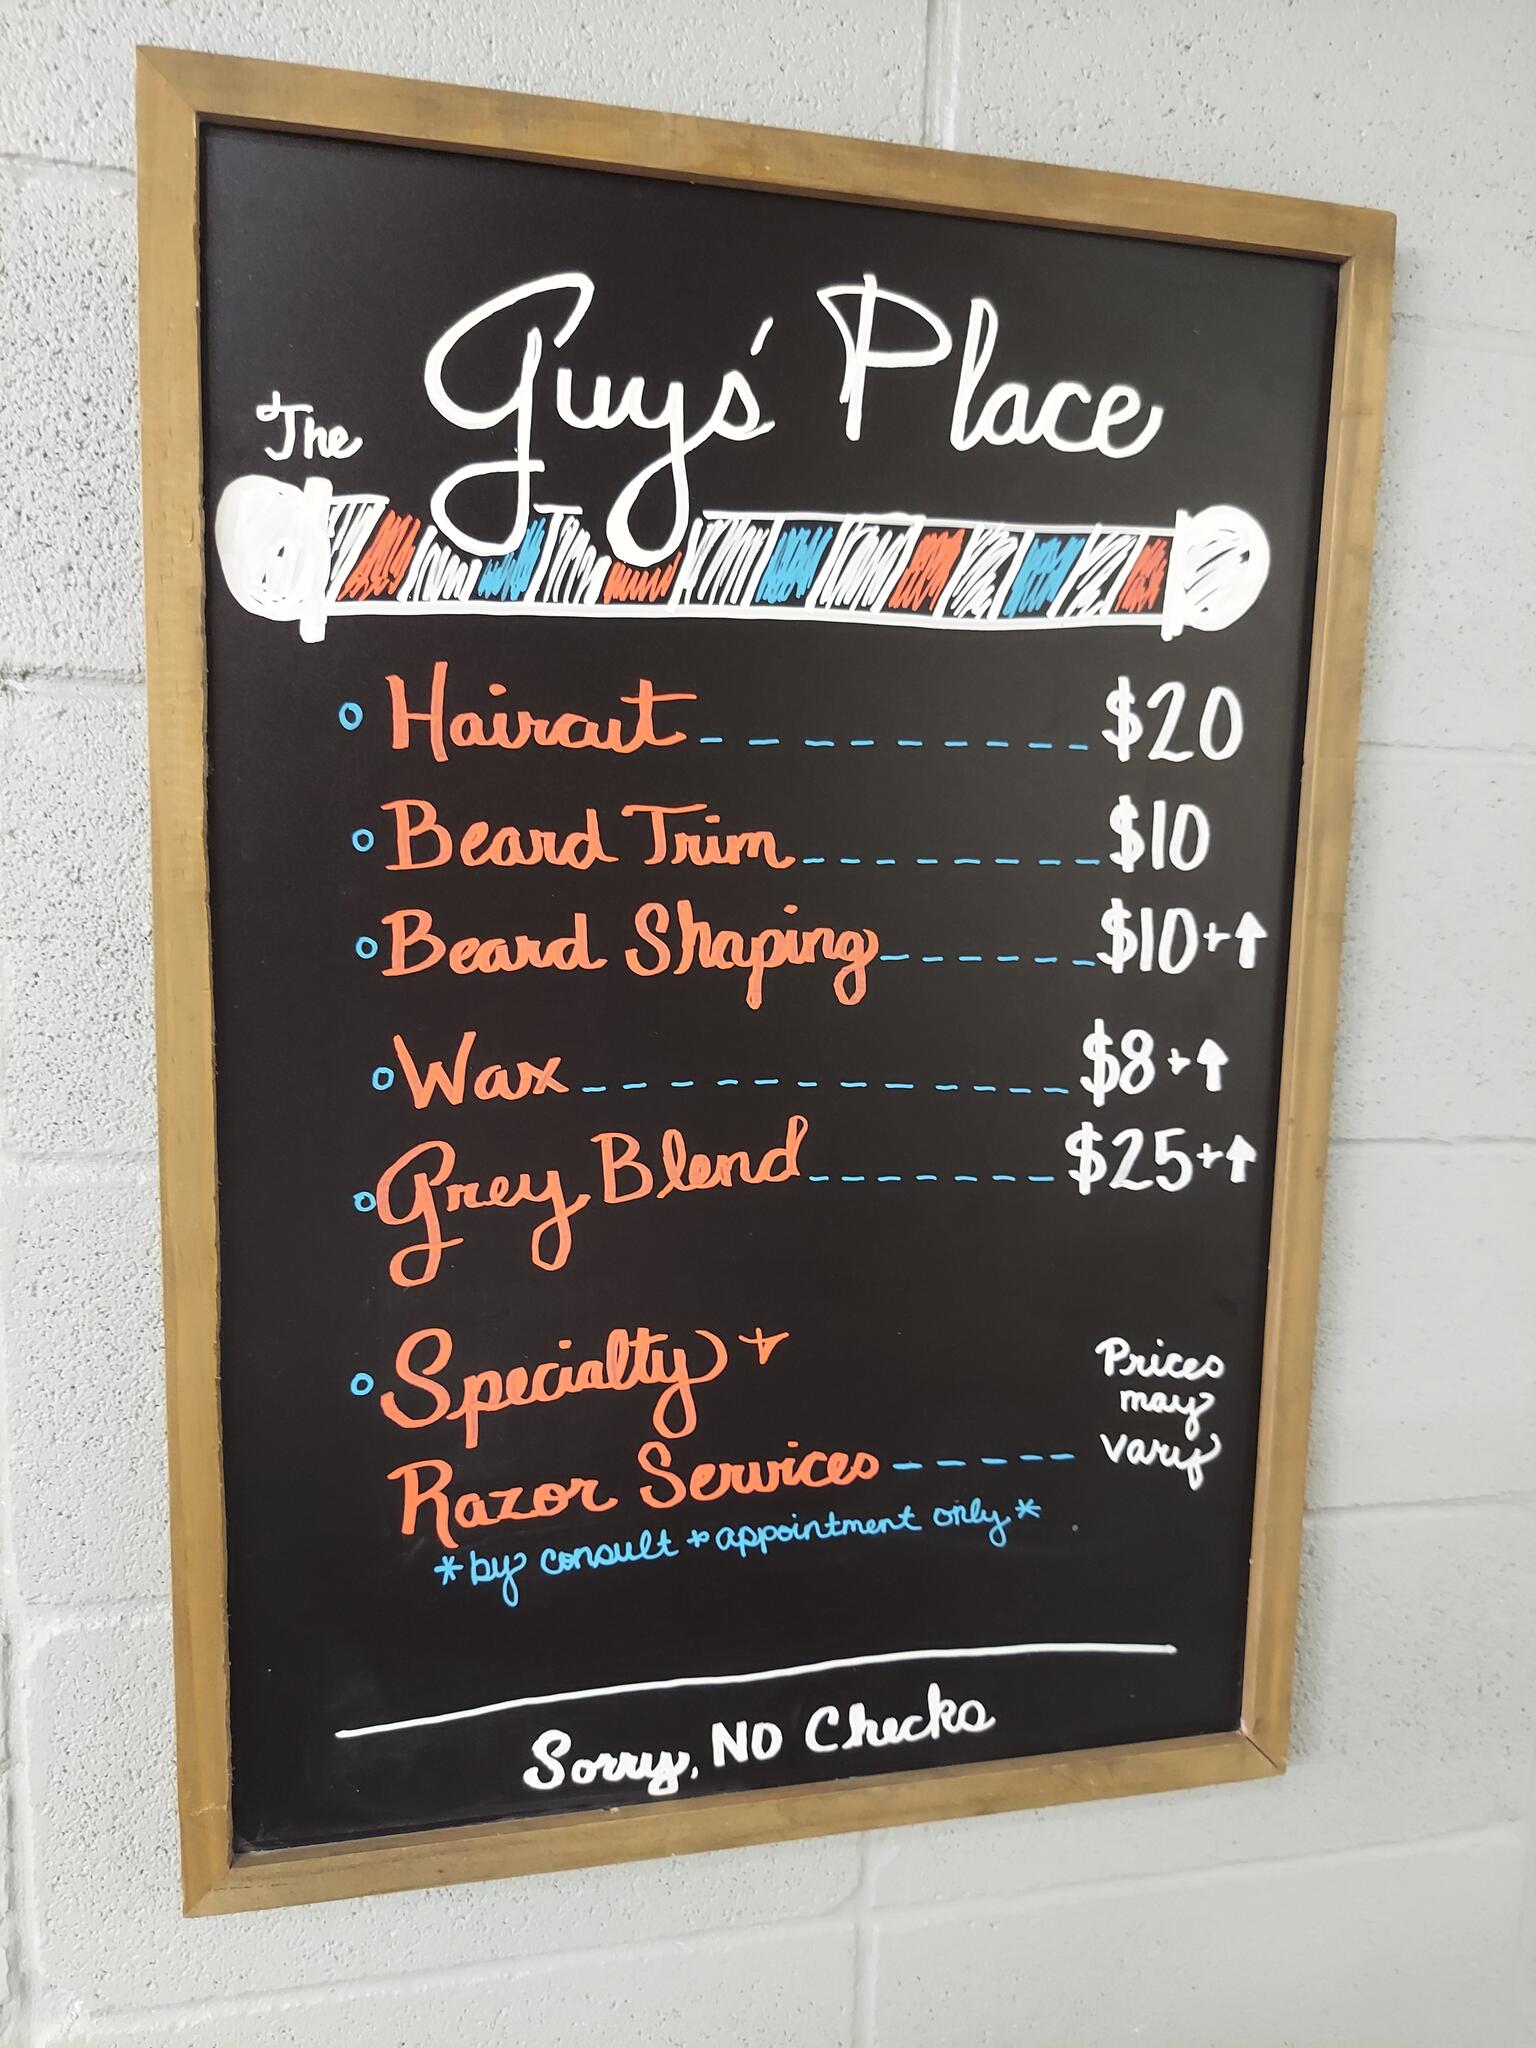 The Guys' Place
Haircut $20
Beard Trim $10
Beard Shaping $10+↑
Wax $8+↑
Grey Blend $25+↑
Specialty +
Razor Services
Prices
may
vary
*by consult + appointment only*
Sorry, NO Checks